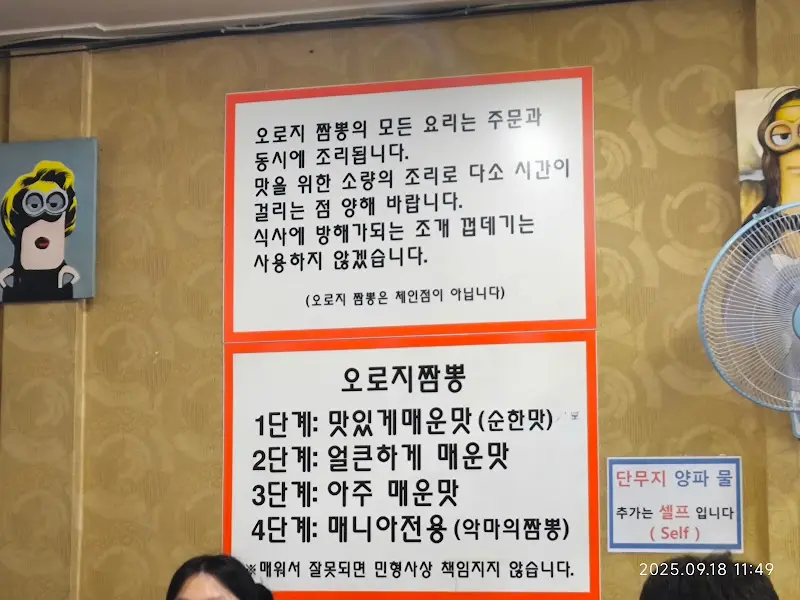 오로지 짬뽕의 모든 요리는 주문과
동시에 조리됩니다.
맛을 위한 소량의 조리로 다소 시간이
걸리는 점 양해 바랍니다.
식사에 방해가되는 조개 껍데기는
사용하지 않겠습니다.
(오로지 짬뽕은 체인점이 아닙니다)
오로지짬뽕
1단계: 맛있게매운맛 (순한맛)
2단계: 얼큰하게 매운맛
3단계: 아주 매운맛
4단계: 매니아전용 (악마의짬뽕)
※매워서 잘못되면 민형사상 책임지지 않습니다.
단무지 양파 물
추가는 셀프 입니다
( Self )
2025.09.18 11:49